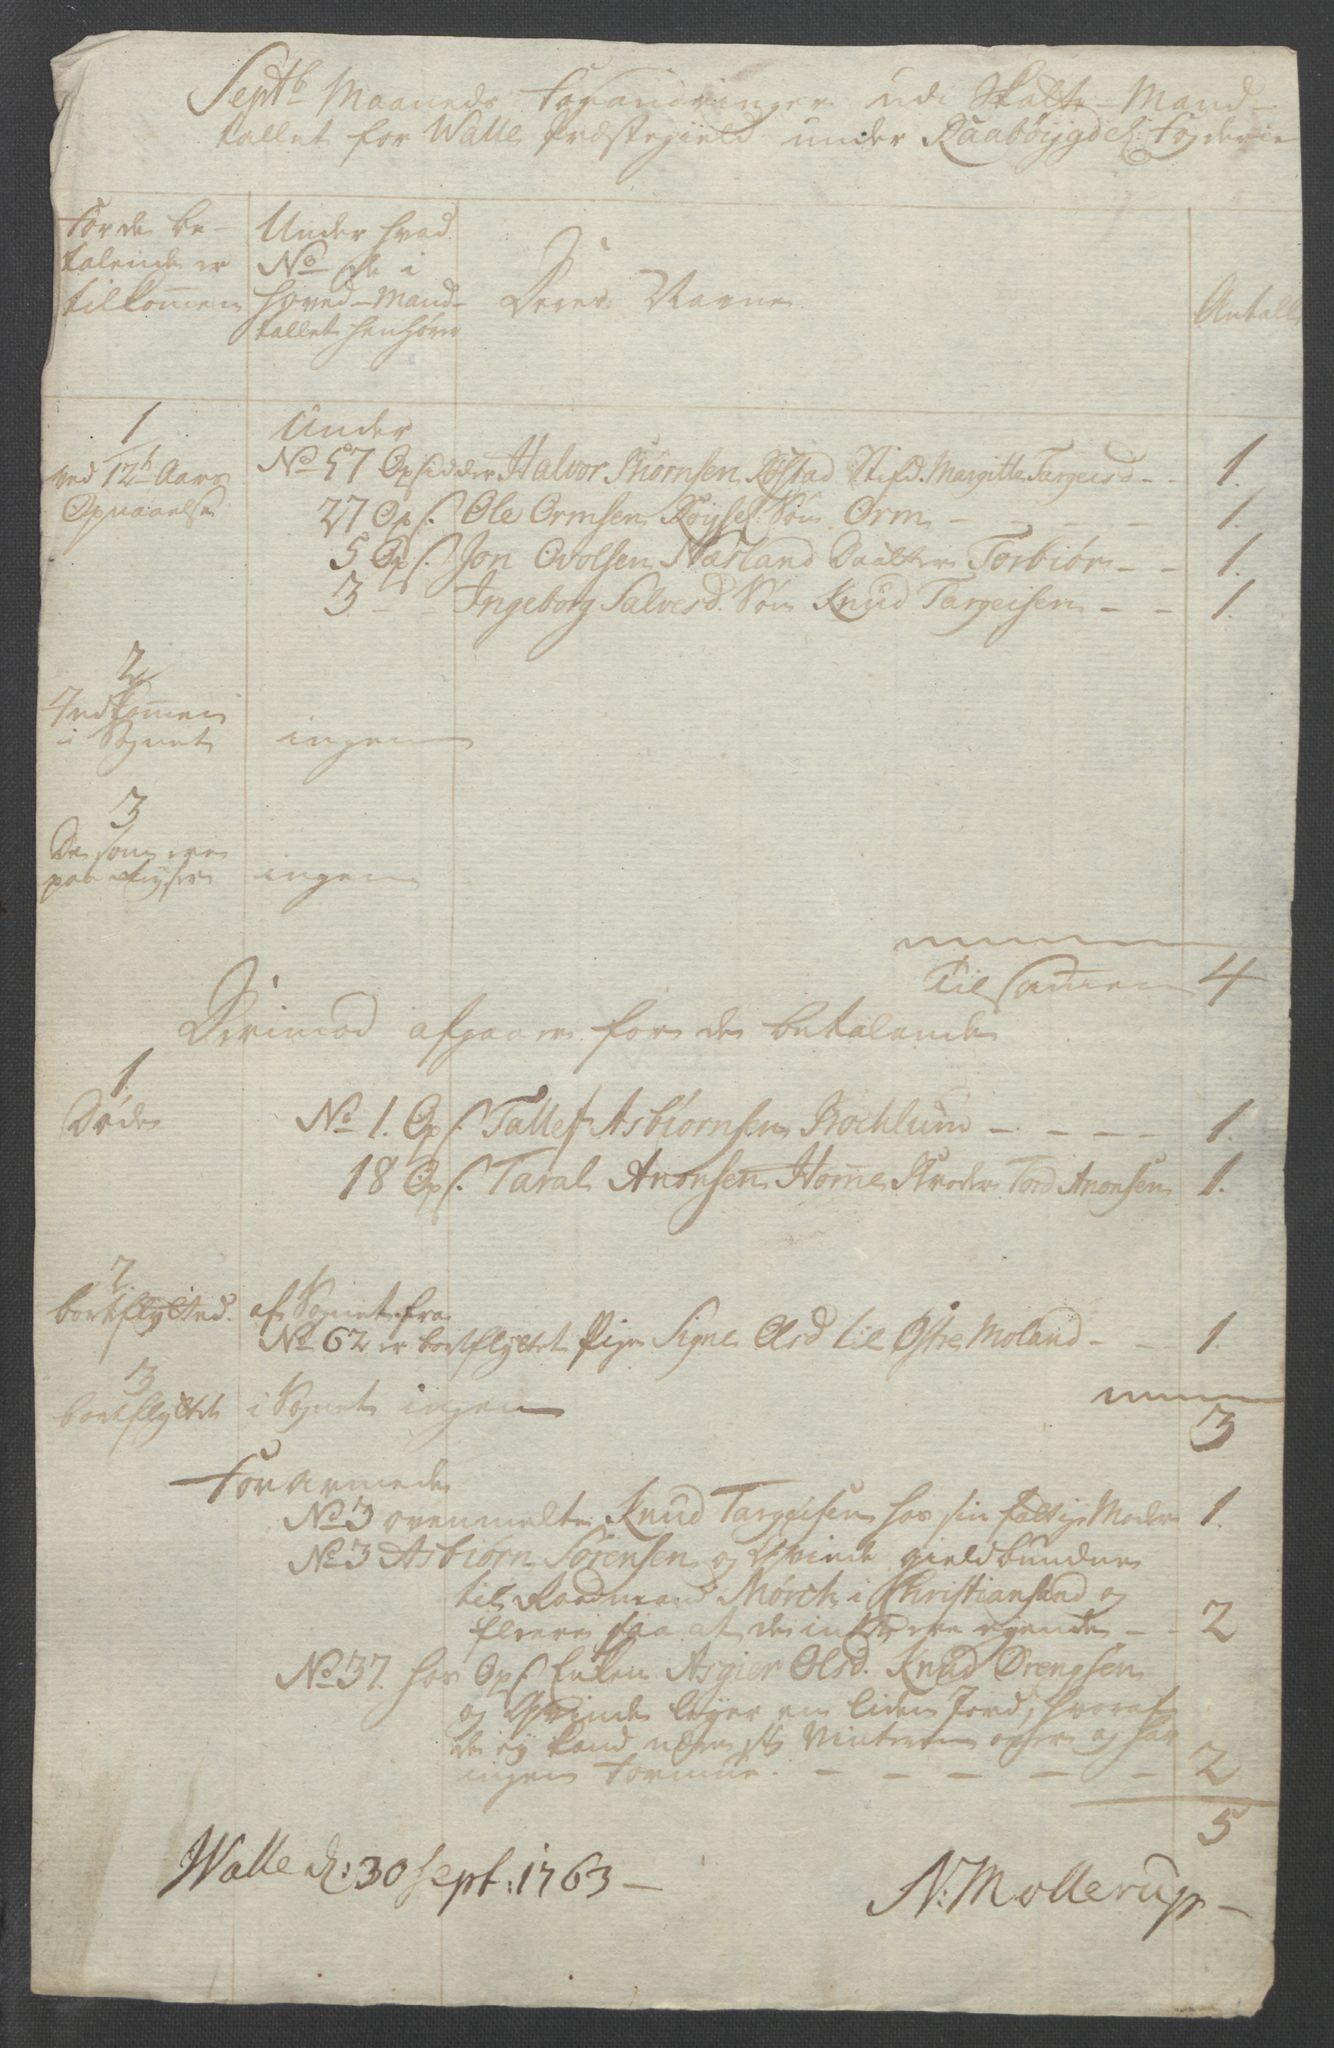 Septb. Maaneds Forandringer udi Skatte-Mand-
tallet for Walle Præstegield under Raabøygdel: Fogderie
For de be-
talende er
tilkom̅en
Under hvad
No de i
Hoved-Mand-
tallet henhører
Deres Navne
Antall
1
ved 12te Aars
Opnaaelse
Under
No 57 Opsidder Halvor Biørnsen Røstad Stifd. Margitte Targeisd - - 1.
27 Ops. Ole Ormsen Røysel. Søn Orm - - - - 1.
5 Ops. Jon Evolsen Næsland Daatter Torbiør - - 1.
3 - - Ingeborg Salvesd. Søn Knud Targeisen - - 1.
2
Indkom̅en
i Sognet ingen
3
De som ere
paa ingen
Til sam̅en 4
Derimod afgaaer for de betalende
1.
Døde
No 1. Ops. Tallef Asbiørnsen Brochlum̅ - - - - 1.
18 Ops. Taral Anonsen Hom̅e Broder Tord Anonsen 1.
2.
bortflytted. af Sognet fra
No 62 er bortflyttet Pige Signe Olsd til Østre Moland - - 1.
3
bortflyttet i Sognet ingen
3
Forarmede
No 3 ovenmelte Knud Targeisen hos sin fattige Moder 1.
No 3 Asbiørn Sørensen og Qvinde gieldbundne
til Raadmand Mørch i Christiansand og
fleere saa at de intet ere eyende - - 2
No 37. hos Ops. Enken Asgier Olsd. Knud Drengsen
og Qvinde leyer en liden Jord, hvoraf
de ey kand nære sig Vinteren over og har
ingen Formue. - - - - - 2
5
Walle d: 30 Sept: 1763 -
N: Mollerup -